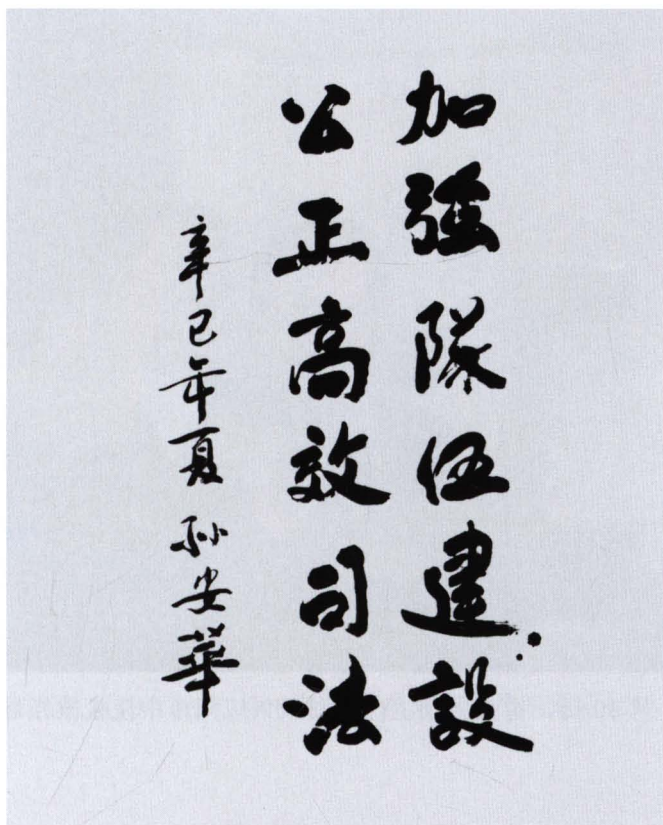 加強隊伍建設
公正高效司法
辛巳年夏 孫安華